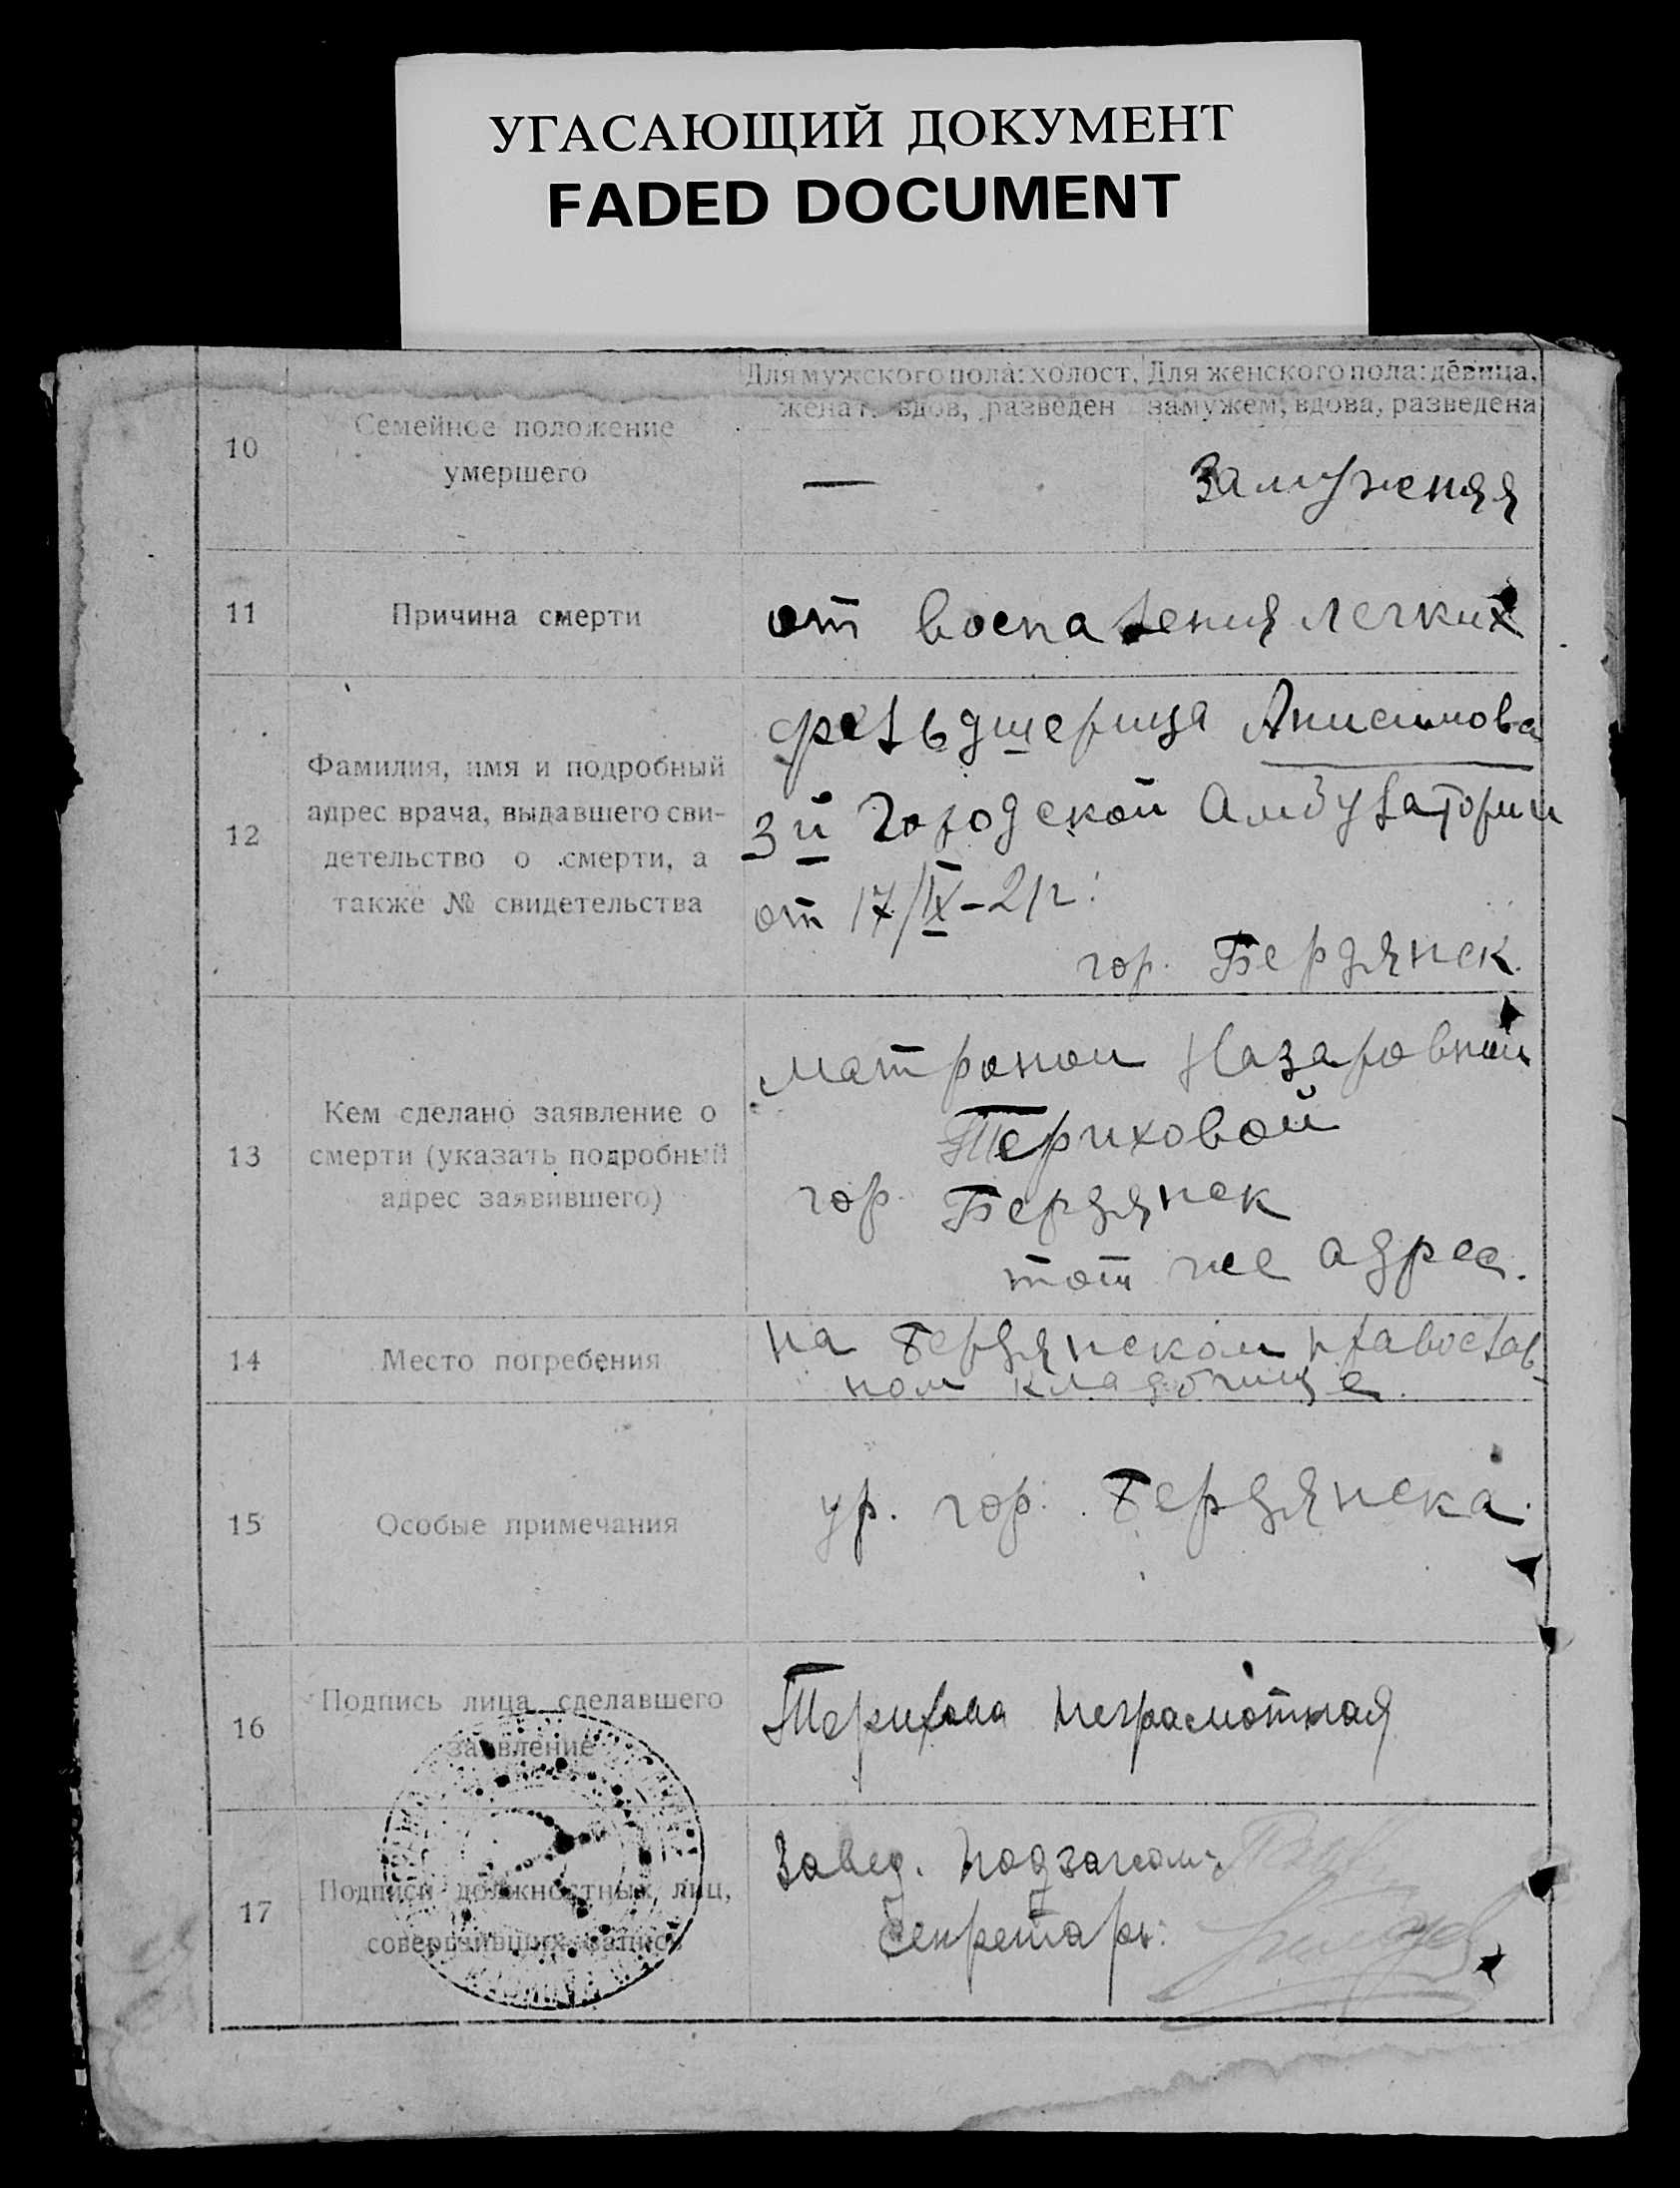 УГАСАЮЩИЙ ДОКУМЕНТ
FADED DOCUMENT
Для мужского пола: холост, женат, вдов, разведен
Для женского пола: девица, замужем, вдова, разведена
10
Семейное положение
умершего
—
Замужняя
11
Причина смерти
от воспаления легких
12
Фамилия, имя и подробный
адрес врача, выдавшего сви-
детельство о смерти, а
также № свидетельства
фельдшерица Анисимова
3й Городской Амбулатории
от 17/IX-21г.
гор. Бердянск.
13
Кем сделано заявление о
смерти (указать подробный
адрес заявившего)
Матроной Назаровной
Териховой
гор. Бердянск
тот же адрес.
14
Место погребения
на Бердянском православ-
ном кладбище.
15
Особые примечания
ур. гор. Бердянска.
16
Подпись лица, сделавшего
заявление
Терихова неграмотная
17
Подписи должностных лиц,
совершивших запись
Завед. Подзагсом:
Секретарь: